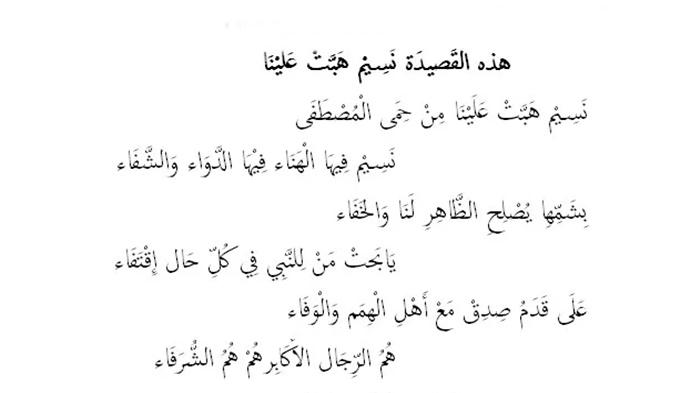 هذه القَصِيدَة نَسِيْم هَبَّتْ عَلَيْنَا
نَسِيْم هَبَّتْ عَلَيْنَا مِنْ حِمَى الْمُصْطَفَى
نَسِيْم فِيهَا الْهَنَاء فِيْهَا الدَّوَاء وَالشَّفَاء
بِشَمِّهَا يُصْلِح الظَّاهِرِ لَنَا وَالخَفَاء
يَابَخَتْ مَنْ لِلنَّبِي فِي كُلِّ حَال إِقْتَفَاء
عَلَى قَدَمْ صِدِقْ مَعْ أَهْلِ الْهِمَم وَالْوَفَاء
هُمُ الرِّجَال الأَكَابِر هُمْ هُمُ الشُّرَفَاء